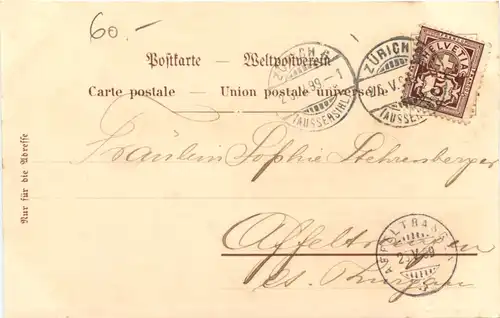 60.-
Postkarte — Weltpostverein
Carte postale — Union postale universelle
Nur für die Adresse
ZÜRICH 6
2. V. 99.-1
(AUSSERSIHL)
ZÜRICH
(AUSSERSIHL)
HELVETIA
5
Fräulein Sophie Stehrenberger
Affeltrangen
AFFELTRANGEN
2. V. 99
Ct. Thurgau